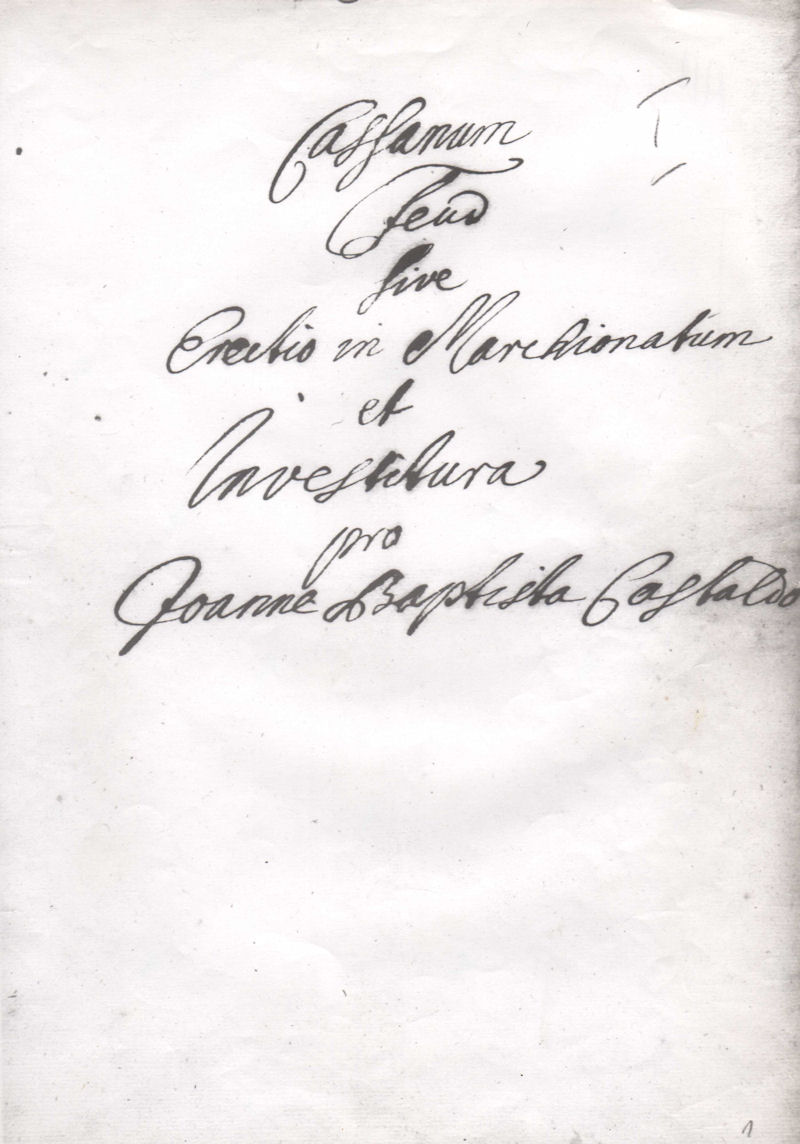 Cassanum
Feud
sive
Erectio in Marchionatum
et
Investitura
pro
Joanne Baptista Castaldo
1